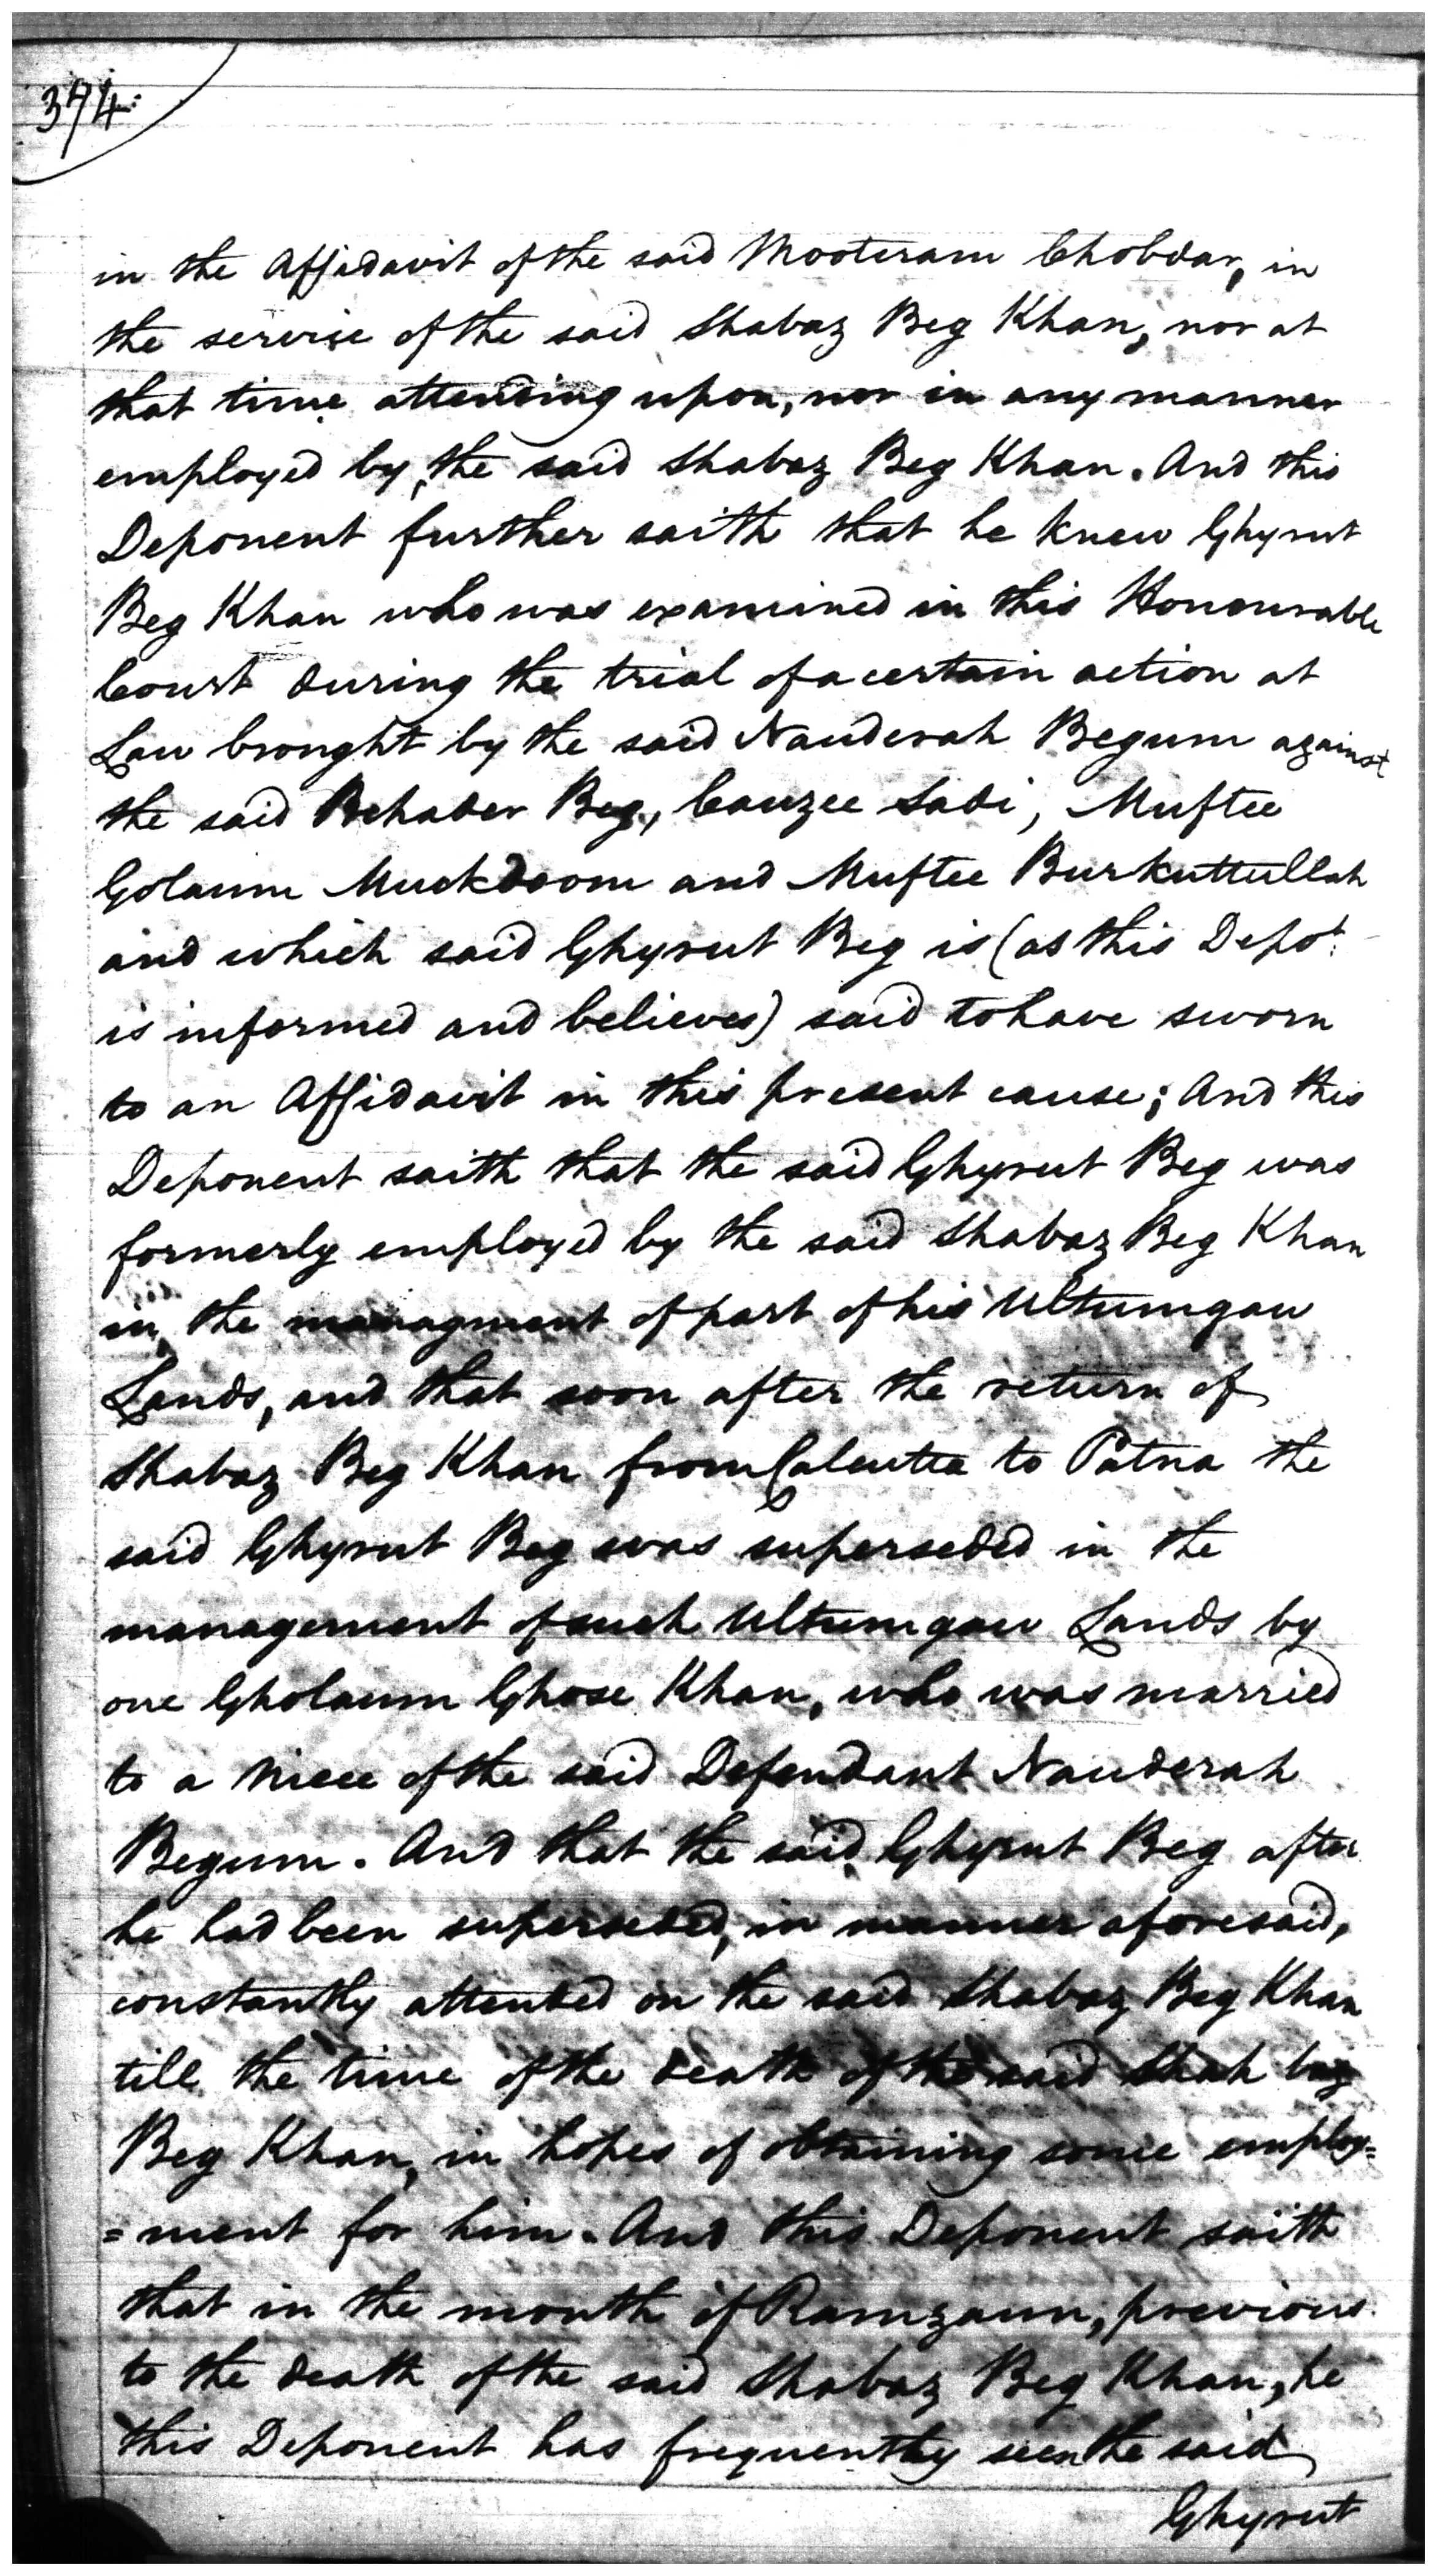 374:
in the Affidavit of the said Mooteram Chobdar, in
the service of the said Shabaz Beg Khan, nor at
that time attending upon, nor in any manner
employed by, the said Shabaz Beg Khan. And this
Deponent further saith that he knew Ghyrut
Beg Khan who was examined in this Honourable
Court during the trial of a certain action at
Law brought by the said Nauderah Begum against
the said Behader Beg, Cauzee Sadi, Muftee
Golaum Muckdoom and Muftee Burkuttullah
and which said Ghyrut Beg is (as this Depot.
is informed and believes) said to have sworn
to an Affidavit in this present cause; And this
Deponent saith that the said Ghyrut Beg was
formerly employed by the said Shabaz Beg Khan
in the managment of part of his Ultumgau
Lands, and that soon after the return of
Shabaz Beg Khan from Calcutta to Patna the
said Ghyrut Beg was superseded in the
management of such Ultumgau Lands by
one Gholaum Ghose Khan, who was married
to a Niece of the said Defendant Nauderah
Begum. And that the said Ghyrut Beg after
he had been superseded, in manner aforesaid,
constantly attended on the said Shabaz Beg Khan
till the time of the death of the said Shah baz
Beg Khan, in hopes of obtaining some employ=
=ment for him. And this Deponent saith
that in the month of Ramzaun, previous
to the death of the said Shabaz Beg Khan, he
this Deponent has frequently seen the said
Ghyrut